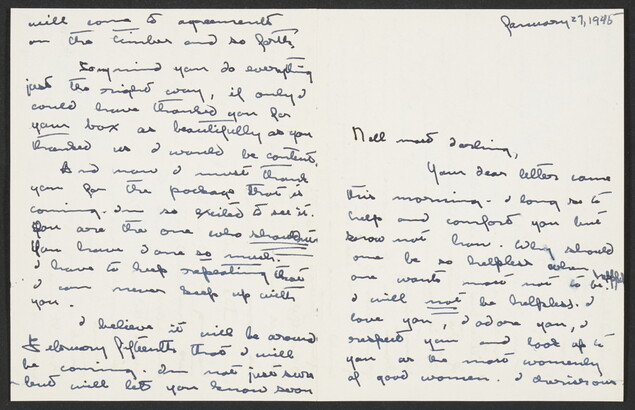 will come to agreements
on the timber and so forth.
To my mind you do everything
just the right way, if only I
could have thanked you for
your box as beautifully as you
thanked us I would be content.
And now I must thank
you for the package that is
coming. I'm so excited to see it.
You are the one who shouldn't
You have done so much.
I have to keep repeating that
I can never keep up with
you.
I believe it will be around
February fifteenth that I will
be coming. I'm not just sure
but will let you know soon
January 27, 1945
Nell most darling,
Your dear letter came
this morning - I long so to
help and comfort you but
know not how. Why should
one be so helpless when
one wants most not to be.
I will not be helpless. I
love you, I adore you, I
respect you and look up to
you as the most womenly
of good women. I